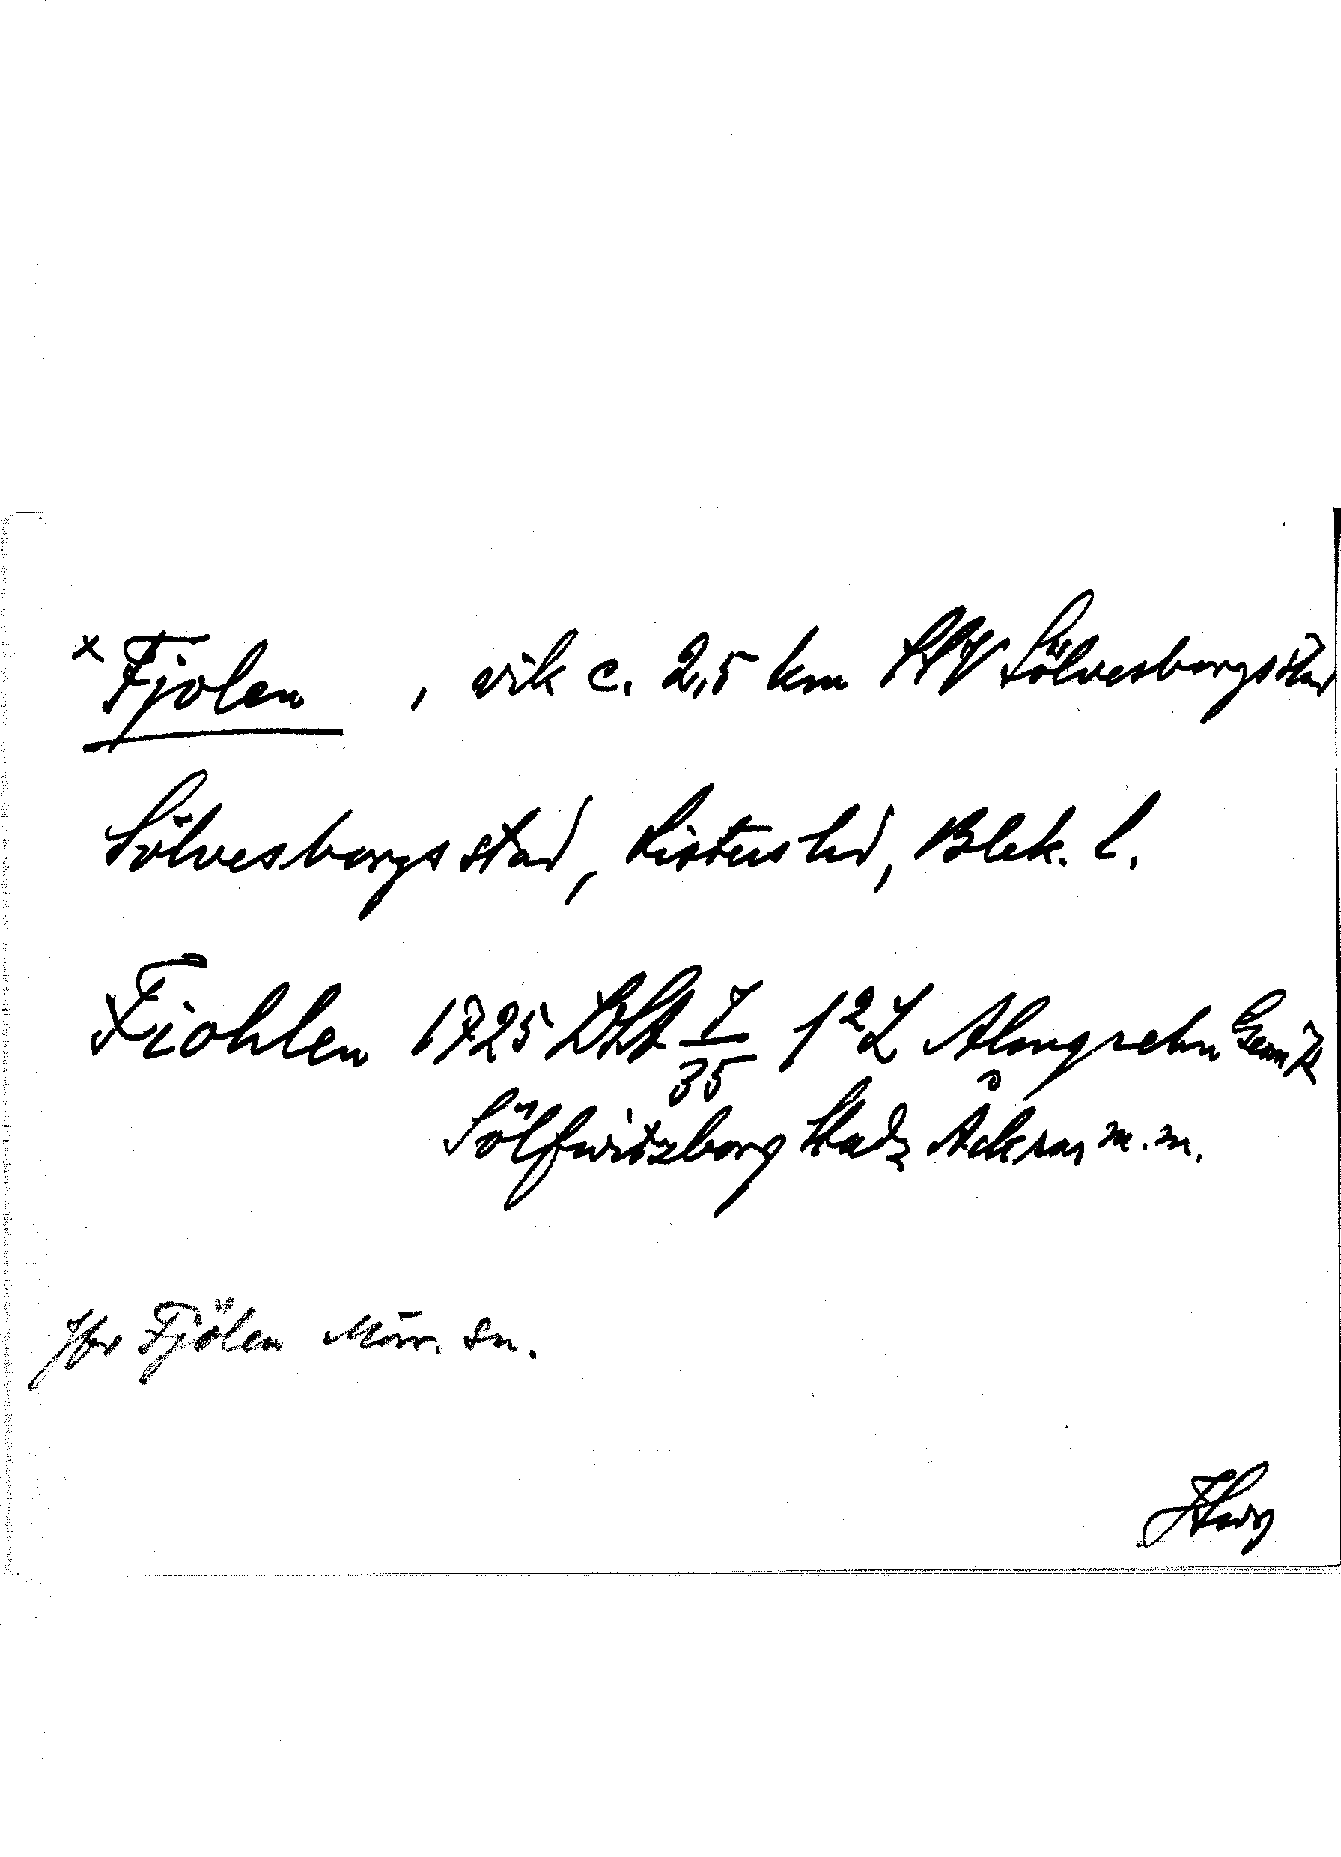 x Fjolen, vik c. 2,5 km SSV Sölvesborgs stad
Sölvesborgs stad, Listers hd, Blek. l.
Fiohlen 1725 LSA I/35 1² L Almgrehn Geom K
Sölfwitzborg Stadz Åkrar m.m.
Jfr Fjölen Mörr. sn.